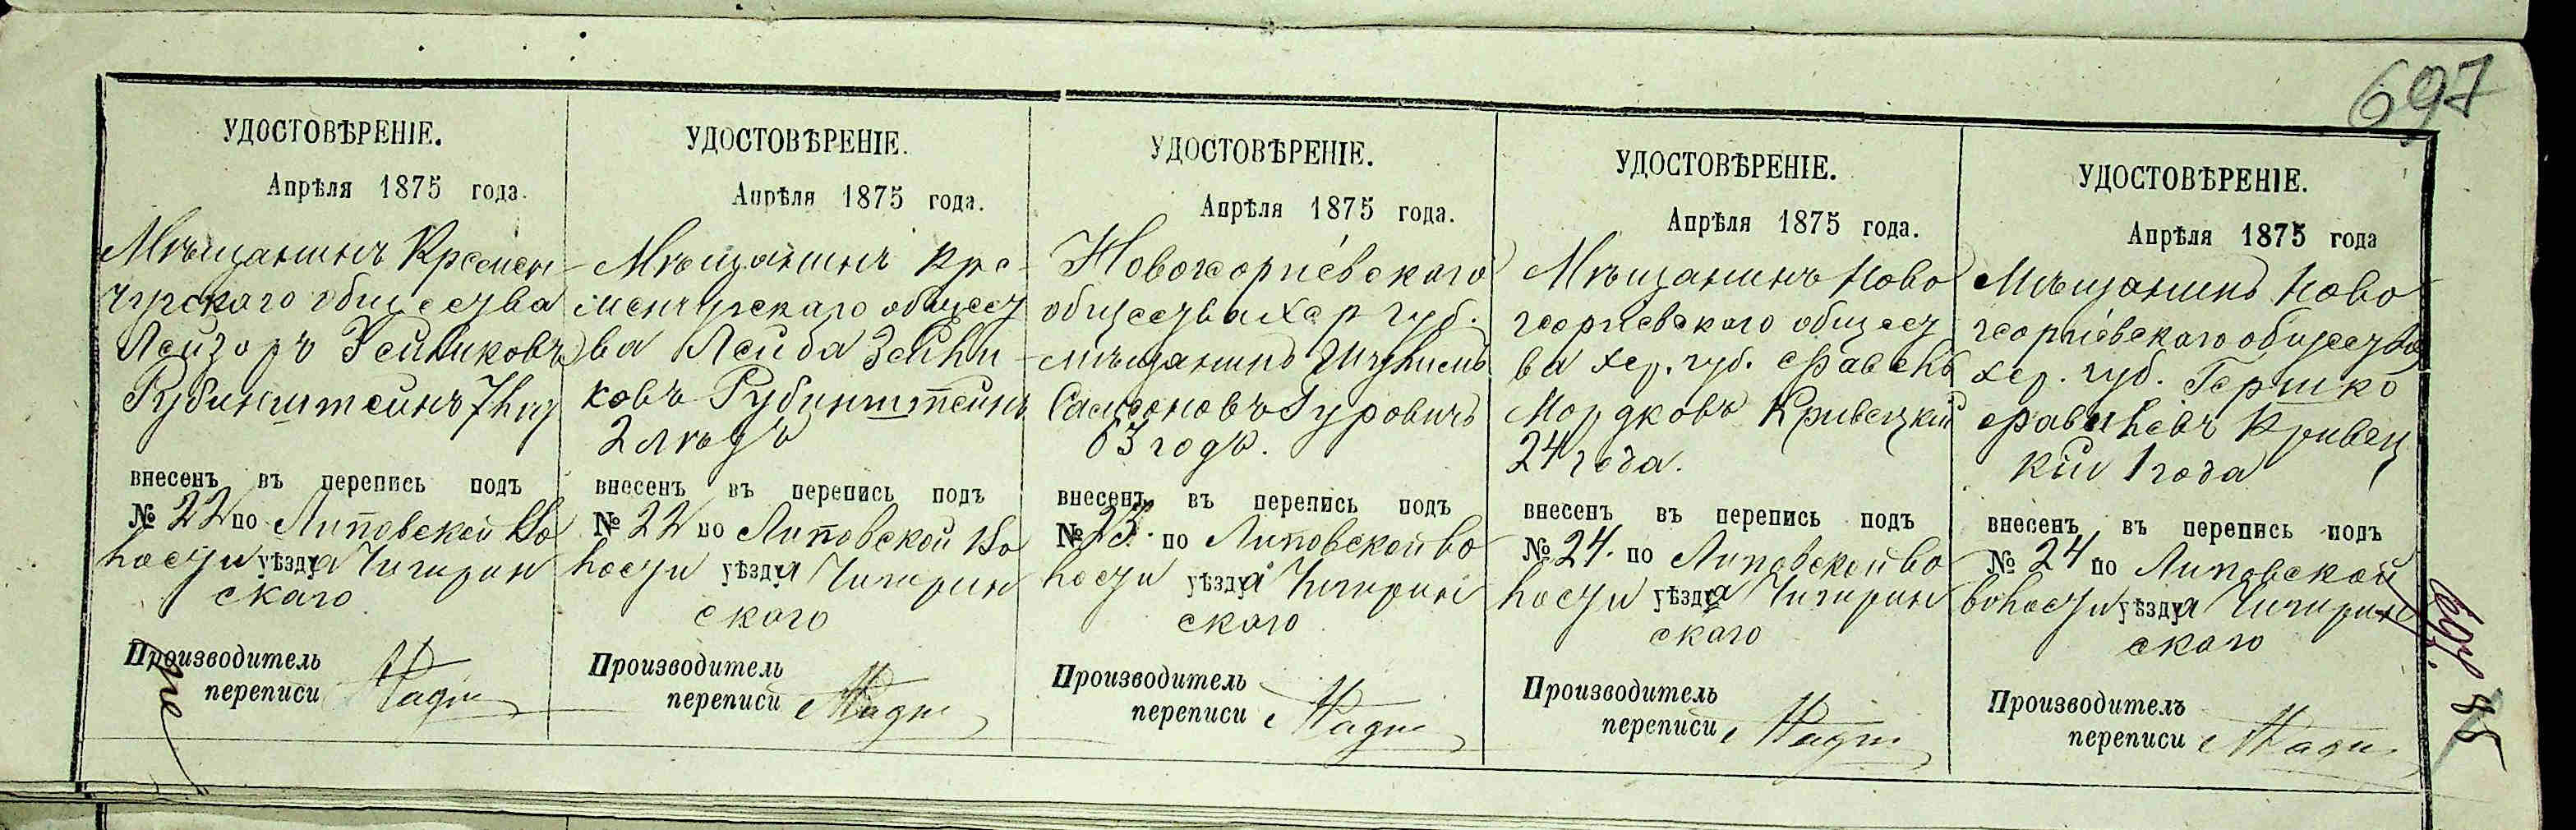 697
УДОСТОВѢРЕНІЕ.
Апрѣля 1875 года.
Мѣщанинъ Кремен-
чугскаго общества
Лейзоръ Зейликовъ
Рубинштейнъ 7 лѣт
внесенъ въ перепись подъ
№ 22 по Липовской Во
лости уѣзда Чигирин
скаго
Производитель
переписи
УДОСТОВѢРЕНІЕ.
Апрѣля 1875 года.
Мѣщанинъ Кре-
менчугскаго общест
ва Лейба Зейли-
ковъ Рубинштейнъ
2 лѣтъ
внесенъ въ перепись подъ
№ 22 по Липовской Во
лости уѣзда Чигирин
скаго
Производитель
переписи
УДОСТОВѢРЕНІЕ.
Апрѣля 1875 года.
Новогеоргіевскаго
общества Хер губ.
мѣщанинъ
Самсоновъ Гуровичъ
63 годъ.
внесенъ въ перепись подъ
№ 23. по Липовской во
лости уѣзда Чигирин
скаго
Производитель
переписи
УДОСТОВѢРЕНІЕ.
Апрѣля 1875 года.
Мѣщанинъ Ново
георгіевскаго общест
ва хер. губ.
Мордковъ Кривецкій
24 года.
внесенъ въ перепись подъ
№ 24. по Липовской во
лости уѣзда Чигирин
скаго
Производитель
переписи
УДОСТОВѢРЕНІЕ.
Апрѣля 1875 года
Мѣщанинъ Ново
георгіевскаго общества
хер. губ. Гершко
Кривец
кій 1 года
внесенъ въ перепись подъ
№ 24 по Липовской
волости уѣзда Чигирин
скаго
Производитель
переписи